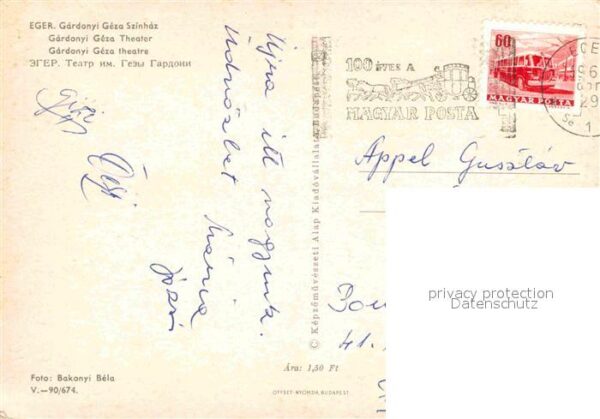 EGER. Gárdonyi Géza Színház
Gárdonyi Géza Theater
Gárdonyi Géza theatre
ЭГЕР. Театр им. Гезы Гардони
Újra itt vagyunk.
Üdvözlet Mária
József
Gizi
© Képzőművészeti Alap Kiadóvállalata, Budapest
100 ÉVES A
MAGYAR POSTA
60f
MAGYAR POSTA
EGE
196
29
1
Appel Gusztáv
41.
privacy protection
Datenschutz
Ára: 1,50 Ft
Foto: Bakonyi Béla
V.—90/674.
OFFSET-NYOMDA, BUDAPEST